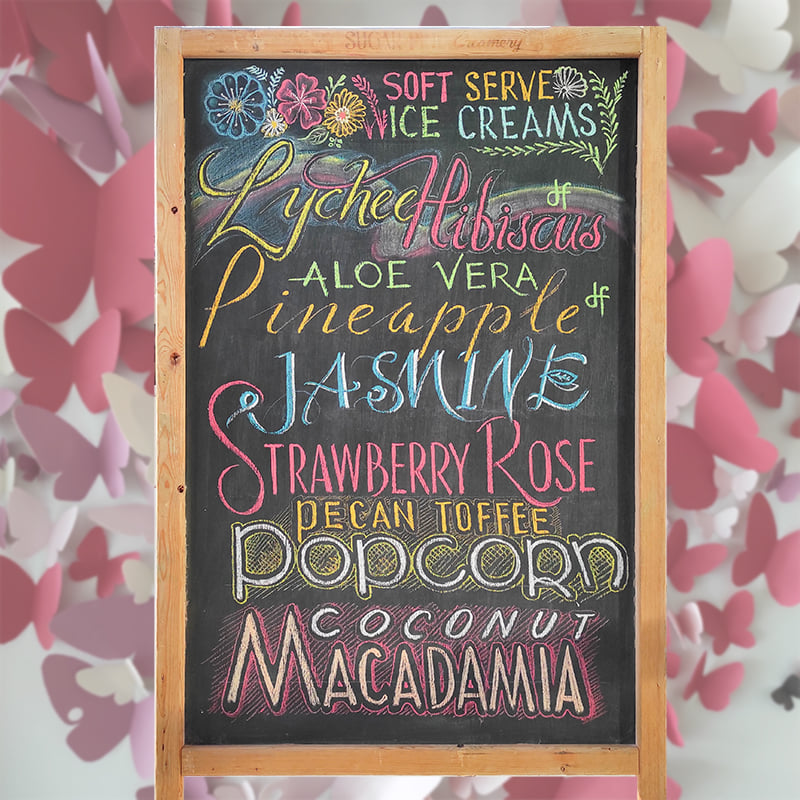 SOFT SERVE
ICE CREAMS
Lychee Hibiscus df
ALOE VERA
Pineapple df
JASMINE
STRAWBERRY ROSE
PECAN TOFFEE
POPCORN
COCONUT
MACADAMIA